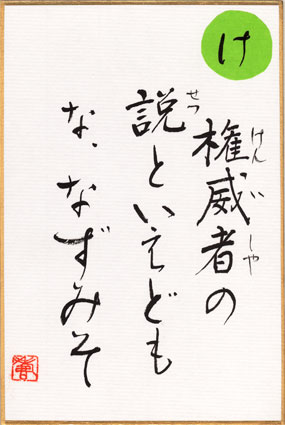 け
けんいしや
権威者の
せつ
説といえども
な、なずみそ